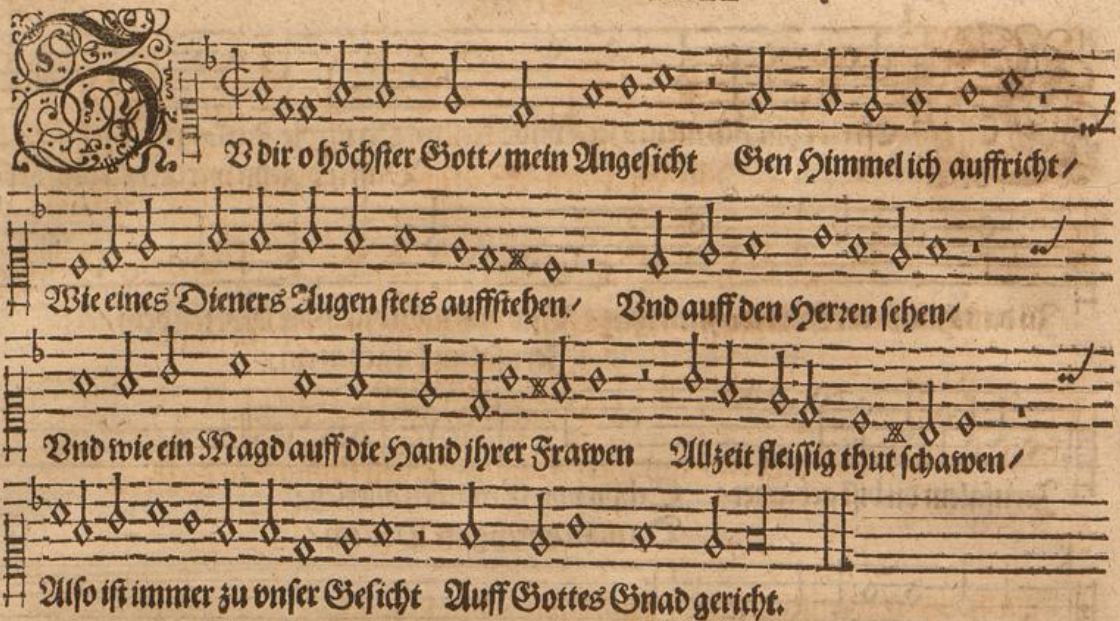 ZV dir o höchster Gott/ mein Angesicht Gen Himmel ich auffricht/
Wie eines Dieners Augen stets auffstehen/ Vnd auff den Herren sehen/
Vnd wie ein Magd auff die Hand jhrer Frawen Allzeit fleissig thut schawen/
Also ist immer zu vnser Gesicht Auff Gottes Gnad gericht.